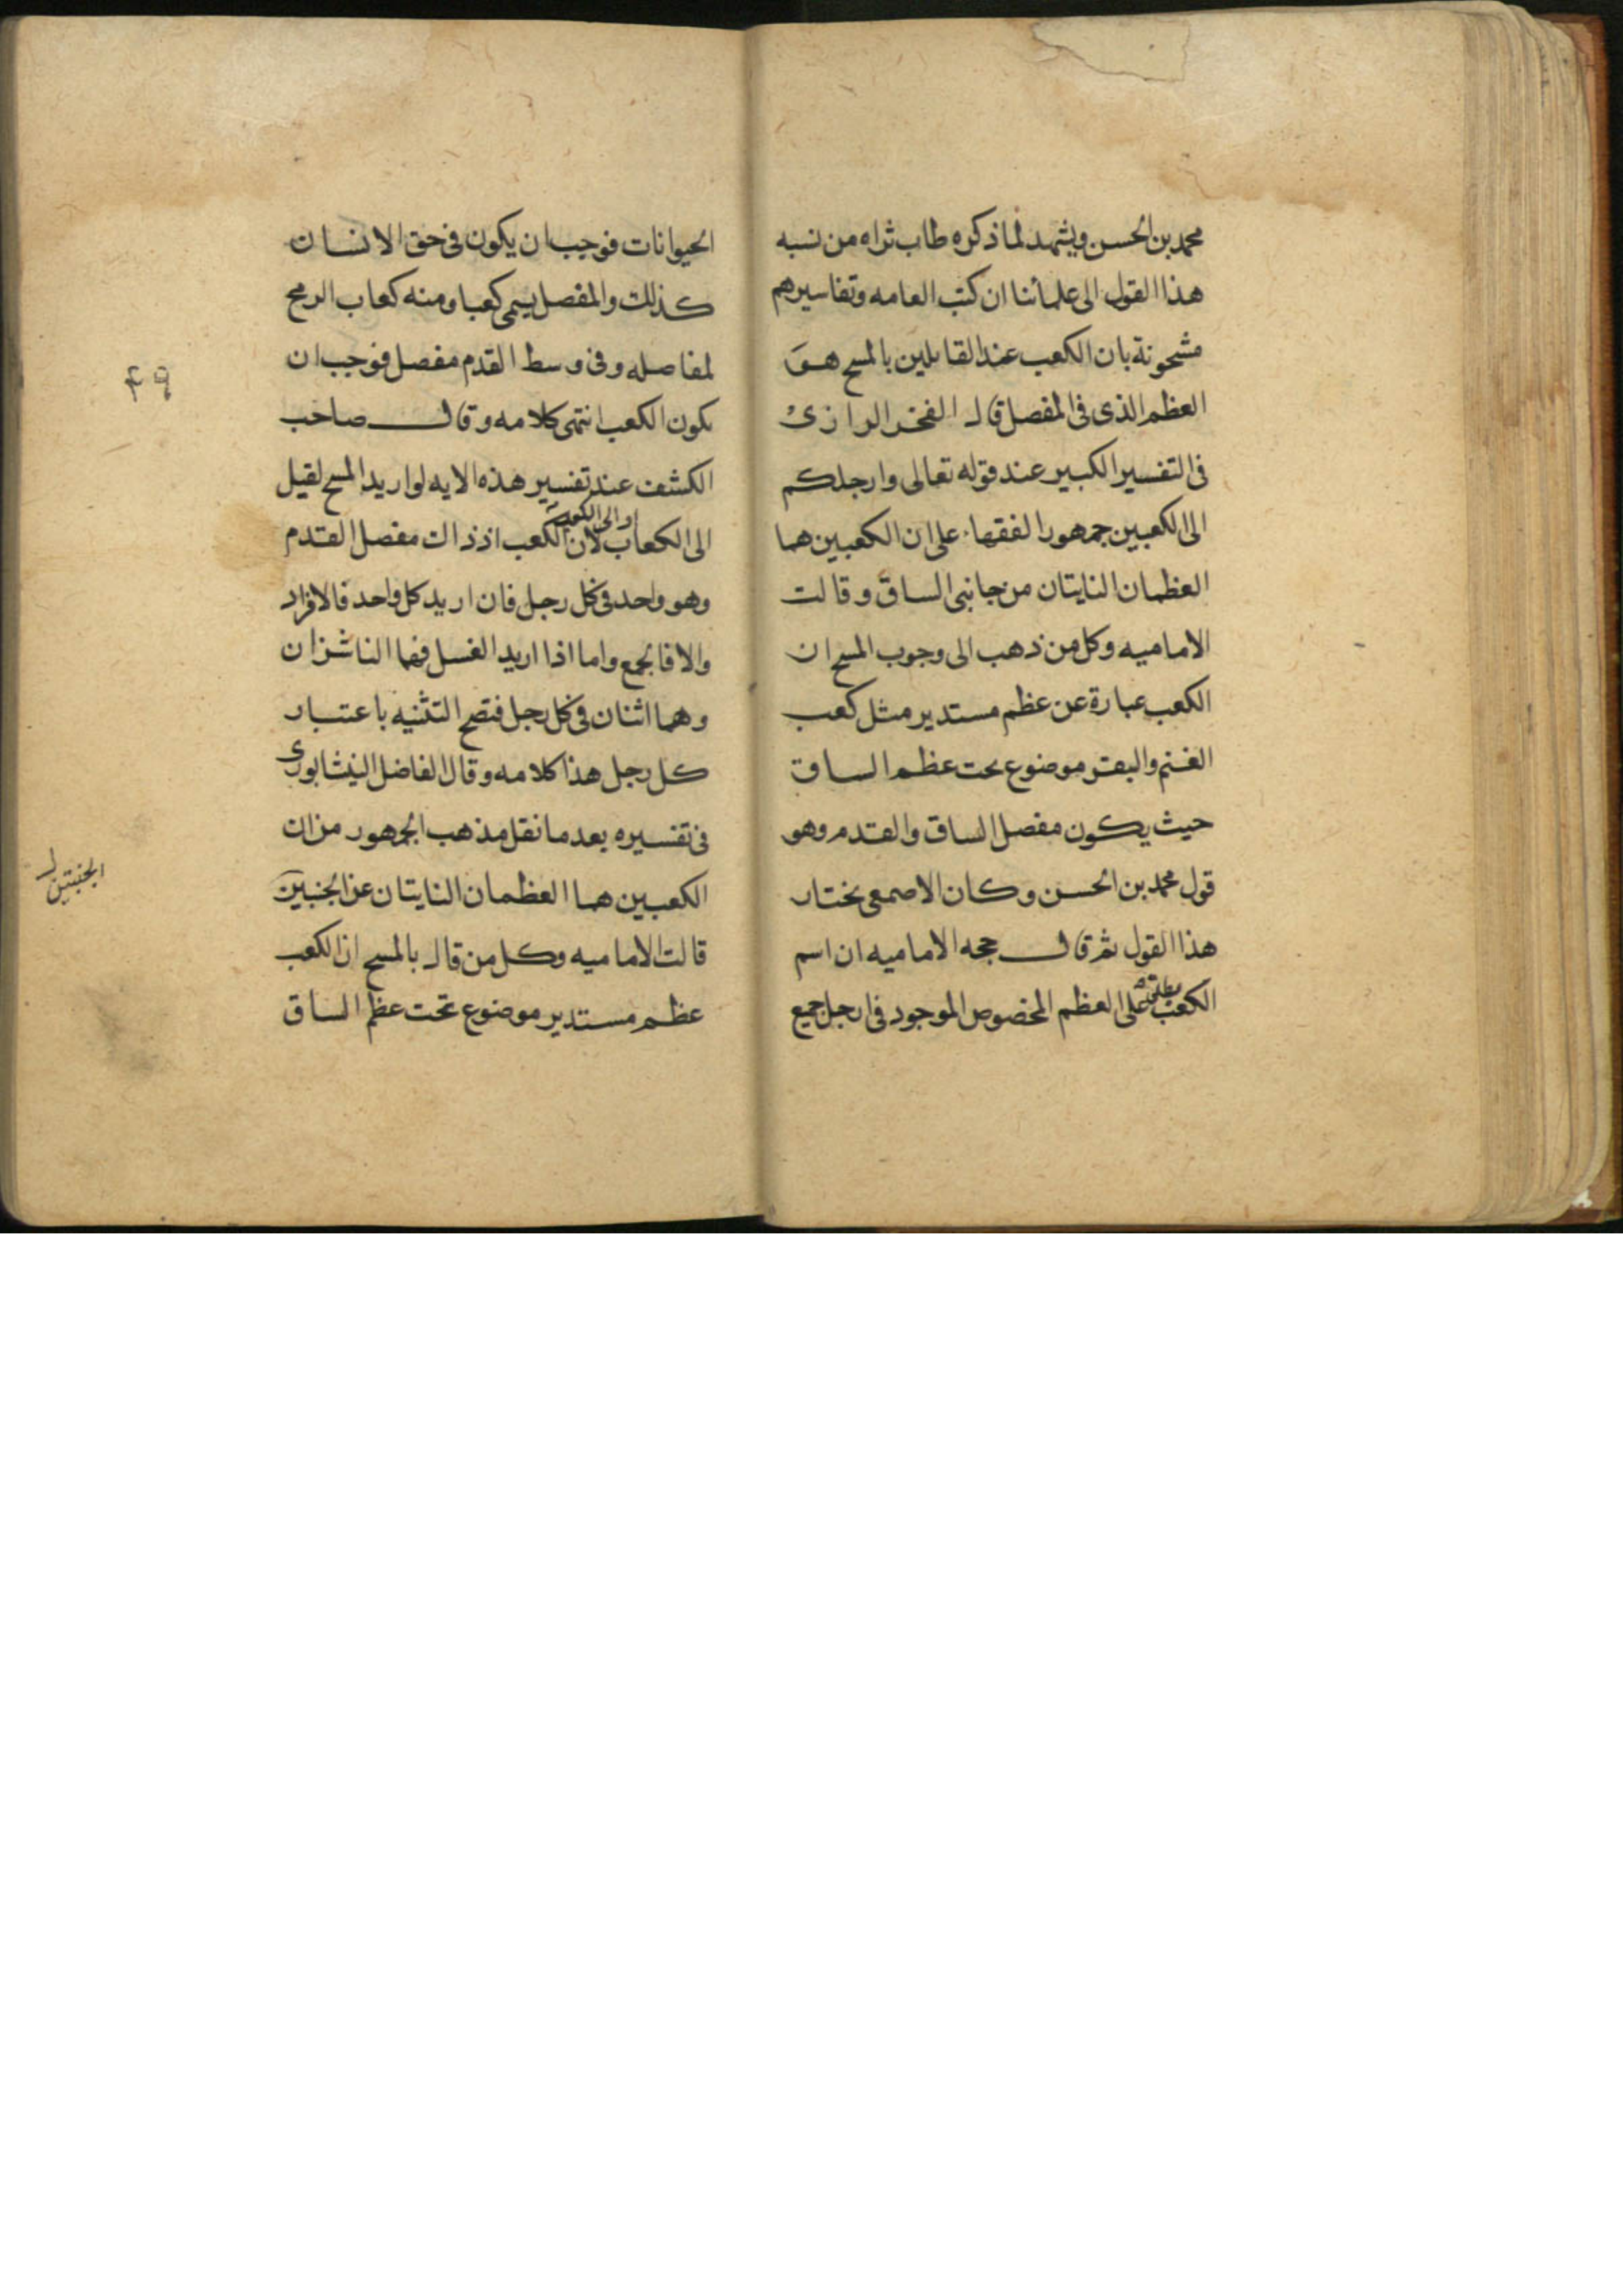 محمد بن الحسن ويشهد لما ذكره طاب ثراه من نسبه
هذا القول الى علمائنا ان كتب العامه وتفاسيرهم
مشحونة بان الكعب عند القايلين بالمسح هو
العظم الذى فى المفصل قال الفخر الرازى
فى التفسير الكبير عند قوله تعالى وارجلكم
الى الكعبين جمهور الفقها على ان الكعبين هما
العظمان الناتيان من جانبى الساق وقالت
الاماميه وكل من ذهب الى وجوب المسح ان
الكعب عبارة عن عظم مستدير مثل كعب
الغنم والبقر موضوع تحت عظم الساق
حيث يكون مفصل الساق والقدم وهو
قول محمد بن الحسن وكان الاصمعى يختار
هذا القول ثم قال حجه الاماميه ان اسم
الكعب يطلق على العظم المخصوص الموجود فى ارجل جميع
الحيوانات فوجب ان يكون فى حق الانسان
كذلك والمفصل يسمى كعبا ومنه كعاب الرمح
لمفاصله وفى وسط القدم مفصل فوجب ان
يكون الكعب انتهى كلامه وقال صاحب
الكشف عند تفسير هذه الايه لو اريد المسح لقيل
الى الكعاب او الى الكعب لان الكعب اذ ذاك مفصل القدم
وهو واحد فى كل رجل فان اريد كل واحد فالافراد
والا فالجمع واما اذا اريد الغسل فهما الناشزان
وهما اثنان فى كل رجل فتصح التثنيه باعتبار
كل رجل هذا كلامه وقال الفاضل النيشابورى
فى تفسيره بعد ما نقل مذهب الجمهور من ان
الكعبين هما العظمان الناتيان عن الجنبين
قالت الاماميه وكل من قال بالمسح ان الكعب
عظم مستدير موضوع تحت عظم الساق
٤٩